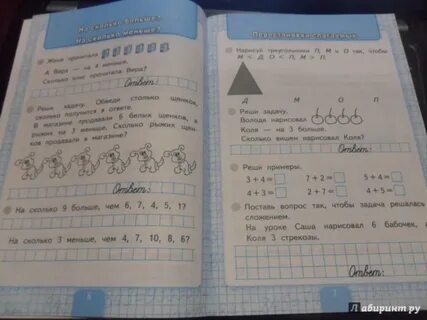 На сколько больше.
На сколько меньше?
Женя прочитала
А Вера — на 4 меньше.
Сколько книг прочитала Вера?
Ответ:
Реши задачу. Обведи столько щенков,
сколько получится в ответе.
В магазине продавали 6 белых щенков, а
рыжих на 3 меньше. Сколько рыжих щен-
ков продавали в магазине?
Ответ:
На сколько 9 больше, чем 6, 7, 4, 5, 1?
На сколько 3 меньше, чем 4, 7, 10, 8, 6?
6
Перестановка слагаемых
Нарисуй треугольники П, М и О так, чтобы
М < Д О < П, М > П.
Д М О П
Реши задачу.
Володя нарисовал
Коля — на 3 больше.
Сколько вишен нарисовал Коля?
Ответ:
Реши примеры.
3 + 4 = 7 + 2 = 5 + 4 =
4 + 3 = 2 + 7 = 4 + 5 =
Поставь вопрос так, чтобы задача решалась
сложением.
На уроке Саша нарисовал 6 бабочек, а
Коля 3 стрекозы.
Ответ:
7
Лабиринт.ру